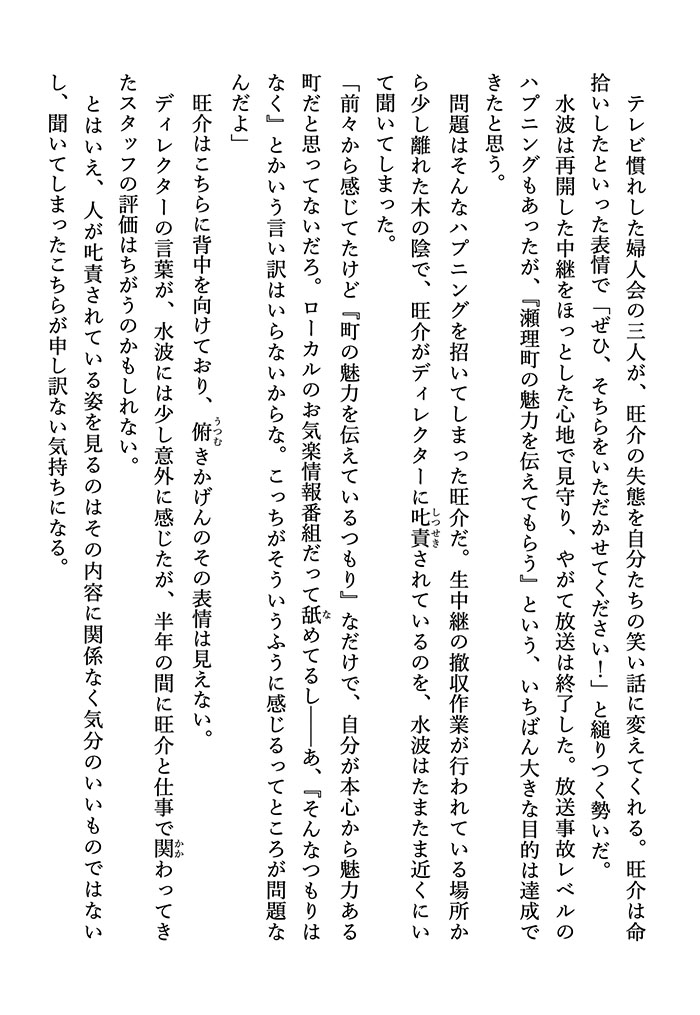 テレビ慣れした婦人会の三人が、旺介の失態を自分たちの笑い話に変えてくれる。旺介は命
拾いしたといった表情で「ぜひ、そちらをいただかせてください！」と縋りつく勢いだ。
　水波は再開した中継をほっとした心地で見守り、やがて放送は終了した。放送事故レベルの
ハプニングもあったが、『瀬理町の魅力を伝えてもらう』という、いちばん大きな目的は達成で
きたと思う。
　問題はそんなハプニングを招いてしまった旺介だ。生中継の撤収作業が行われている場所か
ら少し離れた木の陰で、旺介がディレクターに叱責されているのを、水波はたまたま近くにい
て聞いてしまった。
「前々から感じてたけど『町の魅力を伝えているつもり』なだけで、自分が本心から魅力ある
町だと思ってないだろ。ローカルのお気楽情報番組だって舐めてるし――あ、『そんなつもりは
なく』とかいう言い訳はいらないからな。こっちがそういうふうに感じるってところが問題な
んだよ」
　旺介はこちらに背中を向けており、俯きかげんのその表情は見えない。
　ディレクターの言葉が、水波には少し意外に感じたが、半年の間に旺介と仕事で関わってき
たスタッフの評価はちがうのかもしれない。
　とはいえ、人が叱責されている姿を見るのはその内容に関係なく気分のいいものではない
し、聞いてしまったこちらが申し訳ない気持ちになる。